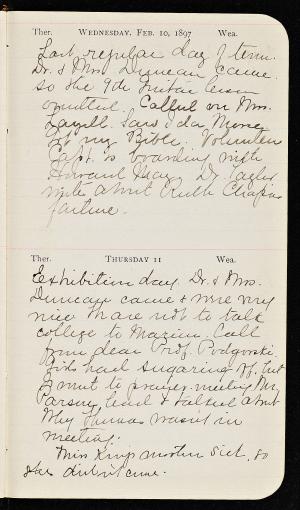 Ther. WEDNESDAY, FEB. 10, 1897 Wea.
Last regular day of term.
Dr. & Mrs. Duncan came.
so the 9th lesson
omitted. Called on Mrs.
Sara & Ida Morse
at my Bible. Volunteer
Capt. is boarding with
Howard May. Dr. Taylor
write about Ruth Chapin
failure.
Ther. THURSDAY 11 Wea.
Exhibition day. Dr. & Mrs.
Duncan came & were very
nice. We are not to talk
college to Marion. Call
from dear Prof. Podgorski.
Girls had sugaring off, but
I went to prayer meeting. Mr.
Parsons lead & talked about
Why Thomas wasn't in
meeting.
Miss King's mother sick, so
she didn't come.